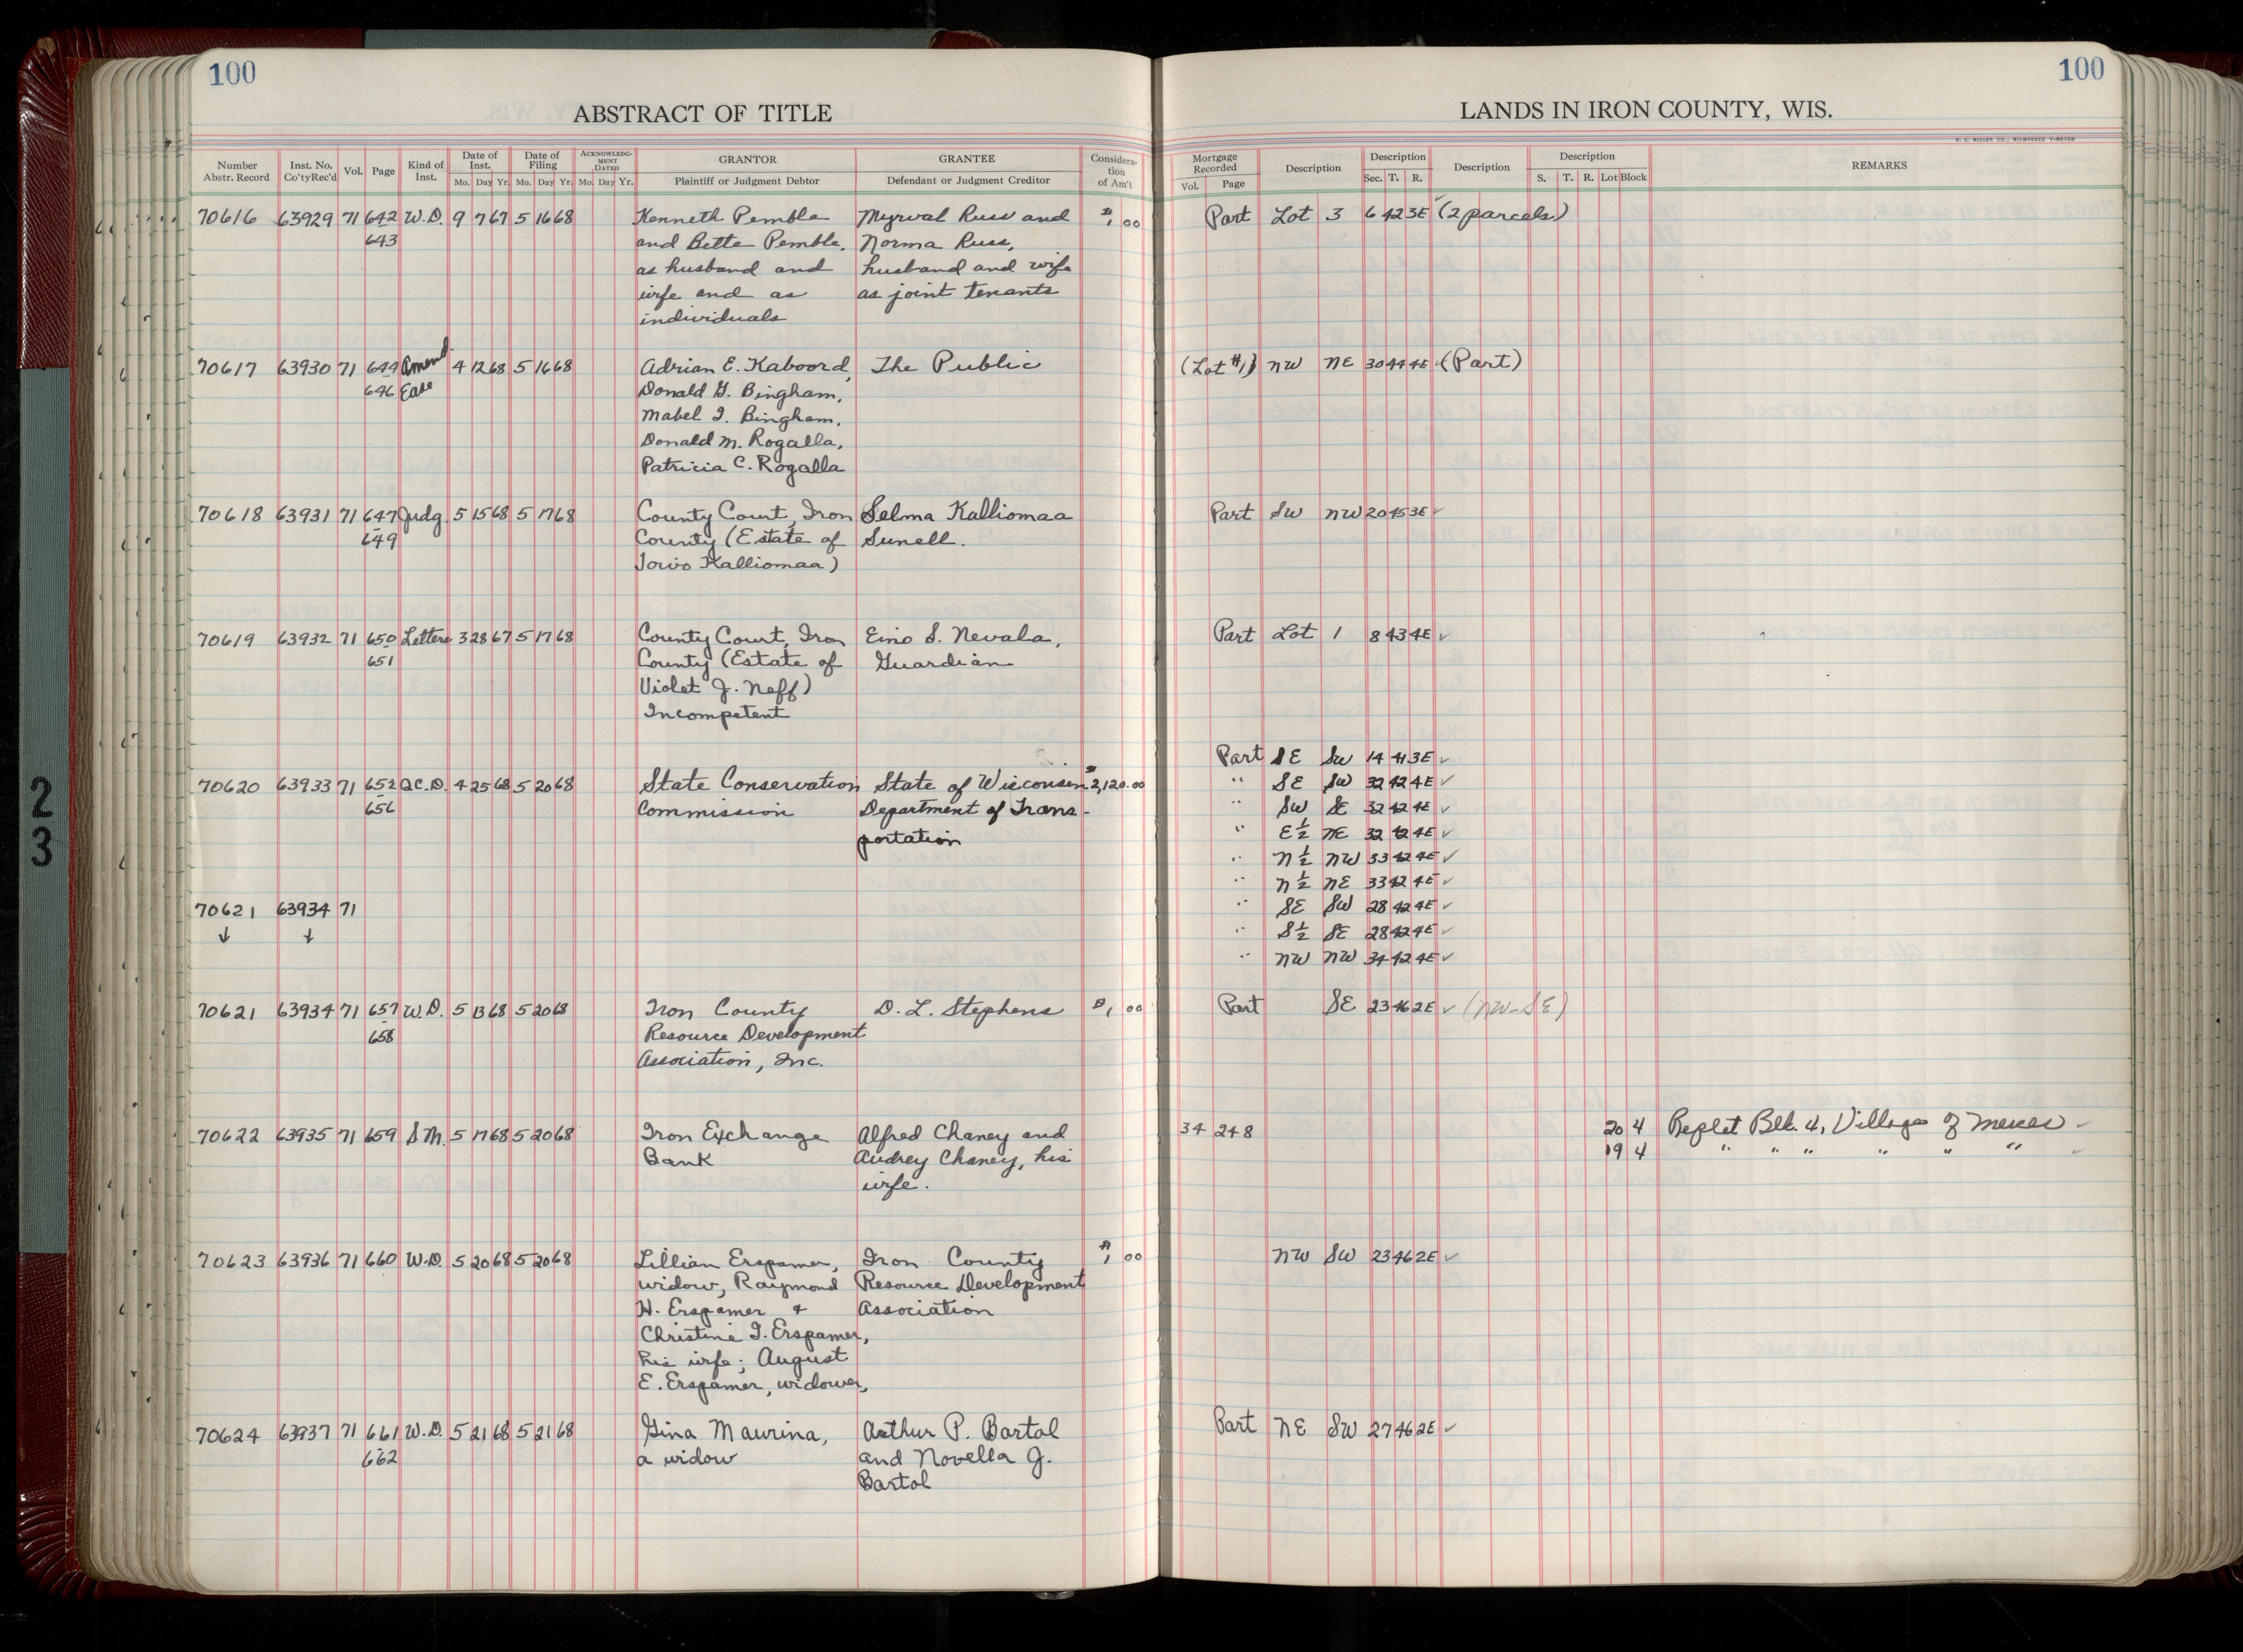 100
100
ABSTRACT OF TITLE
LANDS IN IRON COUNTY, WIS.
H. C. MILLER CO., MILWAUKEE
Number Abstr. Record
Inst. No. Co'ty Rec'd
Vol.
Page
Kind of Inst.
Date of Inst. Mo. Day Yr.
Date of Filing Mo. Day Yr.
ACKNOWLEDGMENT DATED Mo. Day Yr.
GRANTOR Plaintiff or Judgment Debtor
GRANTEE Defendant or Judgment Creditor
Consideration of Am't
Mortgage Recorded Vol. Page
Description
Description Sec. T. R.
Description
Description S. T. R. Lot Block
REMARKS
70616 63929 71 642 W.D. 9 7 67 5 16 68 Kenneth Pemble Myrval Russ and $1.00 Part Lot 3 6 42 3E ✓ (2 parcels)
643 and Bette Pemble, Norma Russ,
as husband and husband and wife
wife and as as joint tenants
individuals
70617 63930 71 644 Amend. 4 12 68 5 16 68 Adrian E. Kaboord, The Public (Lot #1) NW NE 30 44 4E ✓ (Part)
646 Ease Donald G. Bingham,
Mabel I. Bingham,
Donald M. Rogalla,
Patricia C. Rogalla
70618 63931 71 647 Judg. 5 15 68 5 17 68 County Court, Iron Selma Kalliomaa Part SW NW 20 45 3E ✓
649 County (Estate of Sunell.
Toivo Kalliomaa)
70619 63932 71 650 Letters 3 28 67 5 17 68 County Court, Iron Eino S. Nevala, Part Lot 1 8 43 4E ✓
651 County (Estate of Guardian
Violet J. Neff)
Incompetent
Part SE SW 14 41 3E ✓
70620 63933 71 652 Q.C.D. 4 25 68 5 20 68 State Conservation State of Wisconsin $2,120.00 " SE SW 32 42 4E ✓
656 Commission Department of Trans- " SW SE 32 42 4E ✓
portation " E½ NE 32 42 4E ✓
" N½ NW 33 42 4E ✓
" N½ NE 33 42 4E ✓
70621 63934 71 " SE SW 28 42 4E ✓
↓ ↓ " S½ SE 28 42 4E ✓
" NW NW 34 42 4E ✓
70621 63934 71 657 W.D. 5 13 68 5 20 68 Iron County D. L. Stephens $1.00 Part SE 23 46 2E ✓ (NW-SE)
658 Resource Development
Association, Inc.
70622 63935 71 659 S.M. 5 17 68 5 20 68 Iron Exchange Alfred Chaney and 34 248 20 4 Replat Blk. 4, Village of Mercer ✓
Bank Audrey Chaney, his 19 4 " " " " " " ✓
wife.
70623 63936 71 660 W.D. 5 20 68 5 20 68 Lillian Erspamer, Iron County $1.00 NW SW 23 46 2E ✓
widow, Raymond Resource Development
H. Erspamer & Association
Christine I. Erspamer,
his wife; August
E. Erspamer, widower,
70624 63937 71 661 W.D. 5 21 68 5 21 68 Gina Maurina, Arthur P. Bartol Part NE SW 27 46 2E ✓
662 a widow and Novella J.
Bartol
2
3